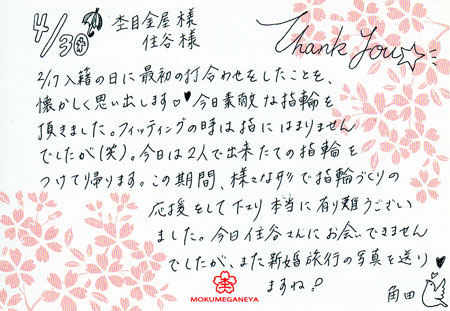 4/30 杢目金屋様
住谷様
Thank You
2/17入籍の日に最初の打合わせをしたことを、
懐かしく思い出します♥今日素敵な指輪を
頂きました。フィッティングの時は指にはまりません
でしたが(笑)。今日は2人で出来たての指輪を
つけて帰ります。この期間、様々な形で指輪づくりの
応援をして下さり本当に有り難うござい
ました。今日住谷さんにお会いできません
でしたが、また新婚旅行の写真を送り
ますね!
角田
MOKUMEGANEYA